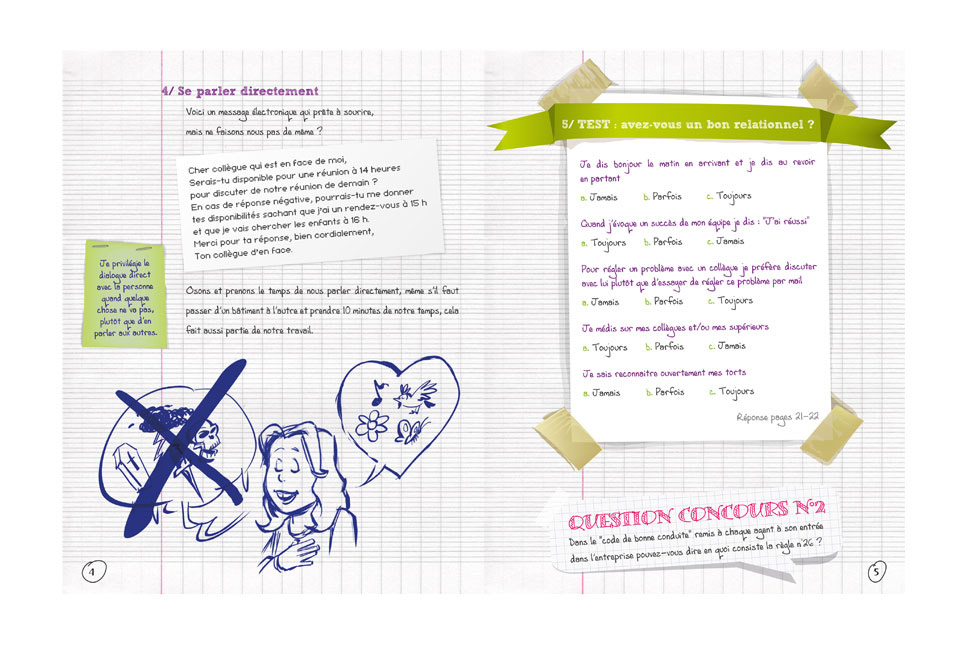 4/ Se parler directement
Voici un message électronique qui prête à sourire,
mais ne faisons nous pas de même ?
Cher collègue qui est en face de moi,
Serais-tu disponible pour une réunion à 14 heures
pour discuter de notre réunion de demain ?
En cas de réponse négative, pourrais-tu me donner
tes disponibilités sachant que j'ai un rendez-vous à 15 h
et que je vais chercher les enfants à 16 h.
Merci pour ta réponse, bien cordialement,
Ton collègue d'en face.
Je privilégie le
dialogue direct
avec la personne
quand quelque
chose ne va pas,
plutôt que d'en
parler aux autres.
Osons et prenons le temps de nous parler directement, même s'il faut
passer d'un bâtiment à l'autre et prendre 10 minutes de notre temps, cela
fait aussi partie de notre travail.
4
5/ TEST : avez-vous un bon relationnel ?
Je dis bonjour le matin en arrivant et je dis au revoir
en partant
a. Jamais b. Parfois c. Toujours
Quand j'évoque un succès de mon équipe je dis : "J'ai réussi"
a. Toujours b. Parfois c. Jamais
Pour régler un problème avec un collègue je préfère discuter
avec lui plutôt que d'essayer de régler ce problème par mail
a. Jamais b. Parfois c. Toujours
Je médis sur mes collègues et/ou mes supérieurs
a. Toujours b. Parfois c. Jamais
Je sais reconnaitre ouvertement mes torts
a. Jamais b. Parfois c. Toujours
Réponse pages 21-22
QUESTION CONCOURS N°2
Dans le "code de bonne conduite" remis à chaque agent à son entrée
dans l'entreprise pouvez-vous dire en quoi consiste la règle n°26 ?
5